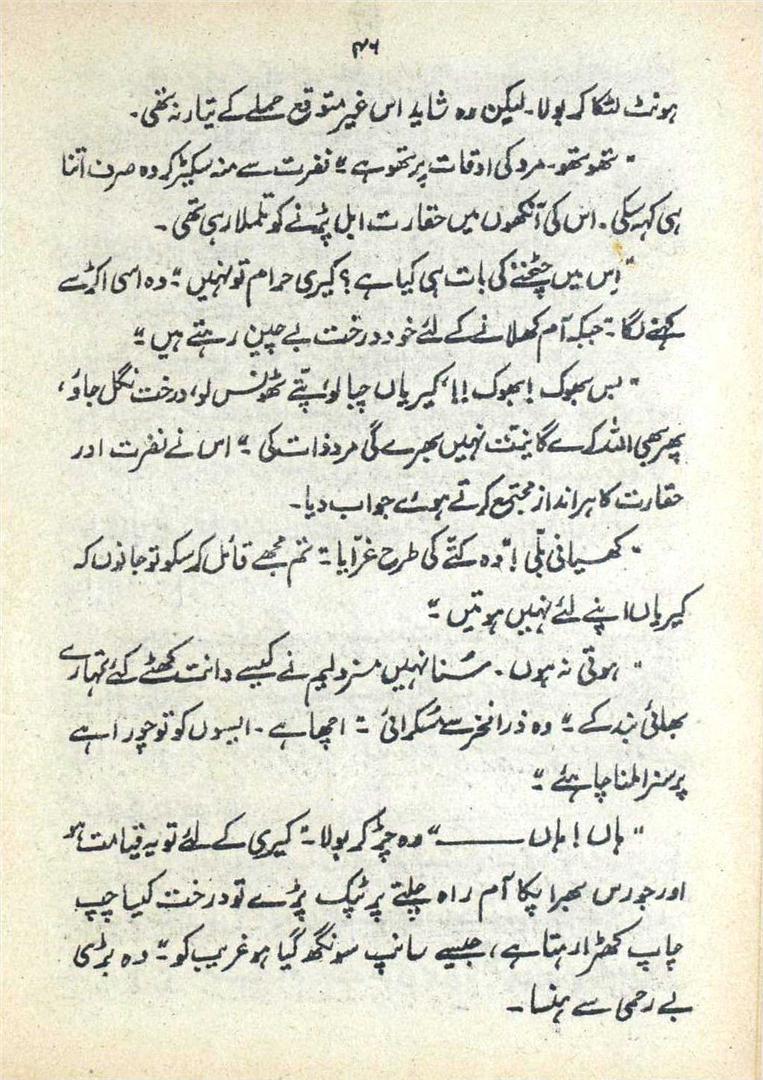 ۴۶
ہونٹ لٹکا کر بولا۔ لیکن وہ شاید اس غیر متوقع حملے کے تیار نہ تھی۔
"تھو تھو۔ مرد کی اوقات پر تھو ہے"۔ نفرت سے منہ سکیڑ کر وہ صرف اتنا
ہی کہہ سکی۔ اس کی آنکھوں میں حقارت ابل پڑنے کو تلملا رہی تھی۔
"اِس میں چٹخنے کی بات ہی کیا ہے؟ کیری حرام تو نہیں"۔ وہ اسی اکڑ سے
کہنے لگا۔ "جبکہ آم کھلانے کے لئے خود درخت بے چین رہتے ہیں"۔
"بس بھوک! بھوک!! کیریاں چبا لو، پتے ٹھونس لو، درخت نگل جاؤ،
پھر بھی اللہ کرے گا نیّت نہیں بھرے گی مرد ذات کی"۔ اس نے نفرت اور
حقارت کا ہر انداز مجتمع کرتے ہوئے جواب دیا۔
"کھسیانی بلّی!" وہ کتّے کی طرح غرّایا۔ "تم مجھے قائل کر سکو تو جانوں کہ
کیریاں اپنے لئے نہیں ہوتیں"۔
"ہوتی نہ ہوں۔ سُنا نہیں مسز ولیم نے کیسے دانت کھٹے کئے تمہارے
بھائی بند کے"۔ وہ ذرا فخر سے مُسکرائی۔ "اچھا ہے۔ ایسوں کو تو چوراہے
پر سزا ملنا چاہئے"۔
"ہاں! ہاں ——" وہ چِڑ کر بولا۔ "کیری کے لئے تو یہ قیامت ہو
اور جو رس بھرا پکا آم راہ چلتے پر ٹپک پڑے تو درخت کیا چپ
چاپ کھڑا رہتا ہے، جیسے سانپ سونگھ گیا ہو غریب کو"۔ وہ بڑی
بے رحمی سے ہنسا۔